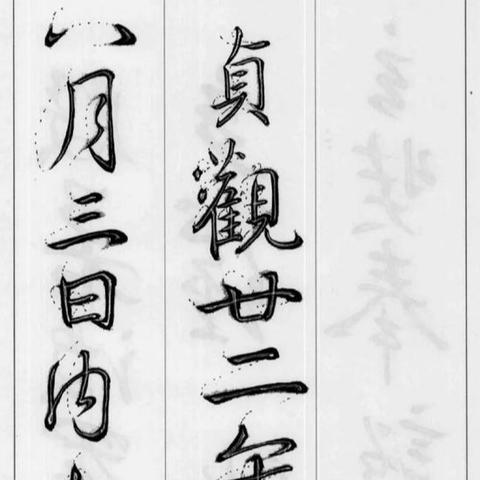 貞觀廿二年
八月三日内